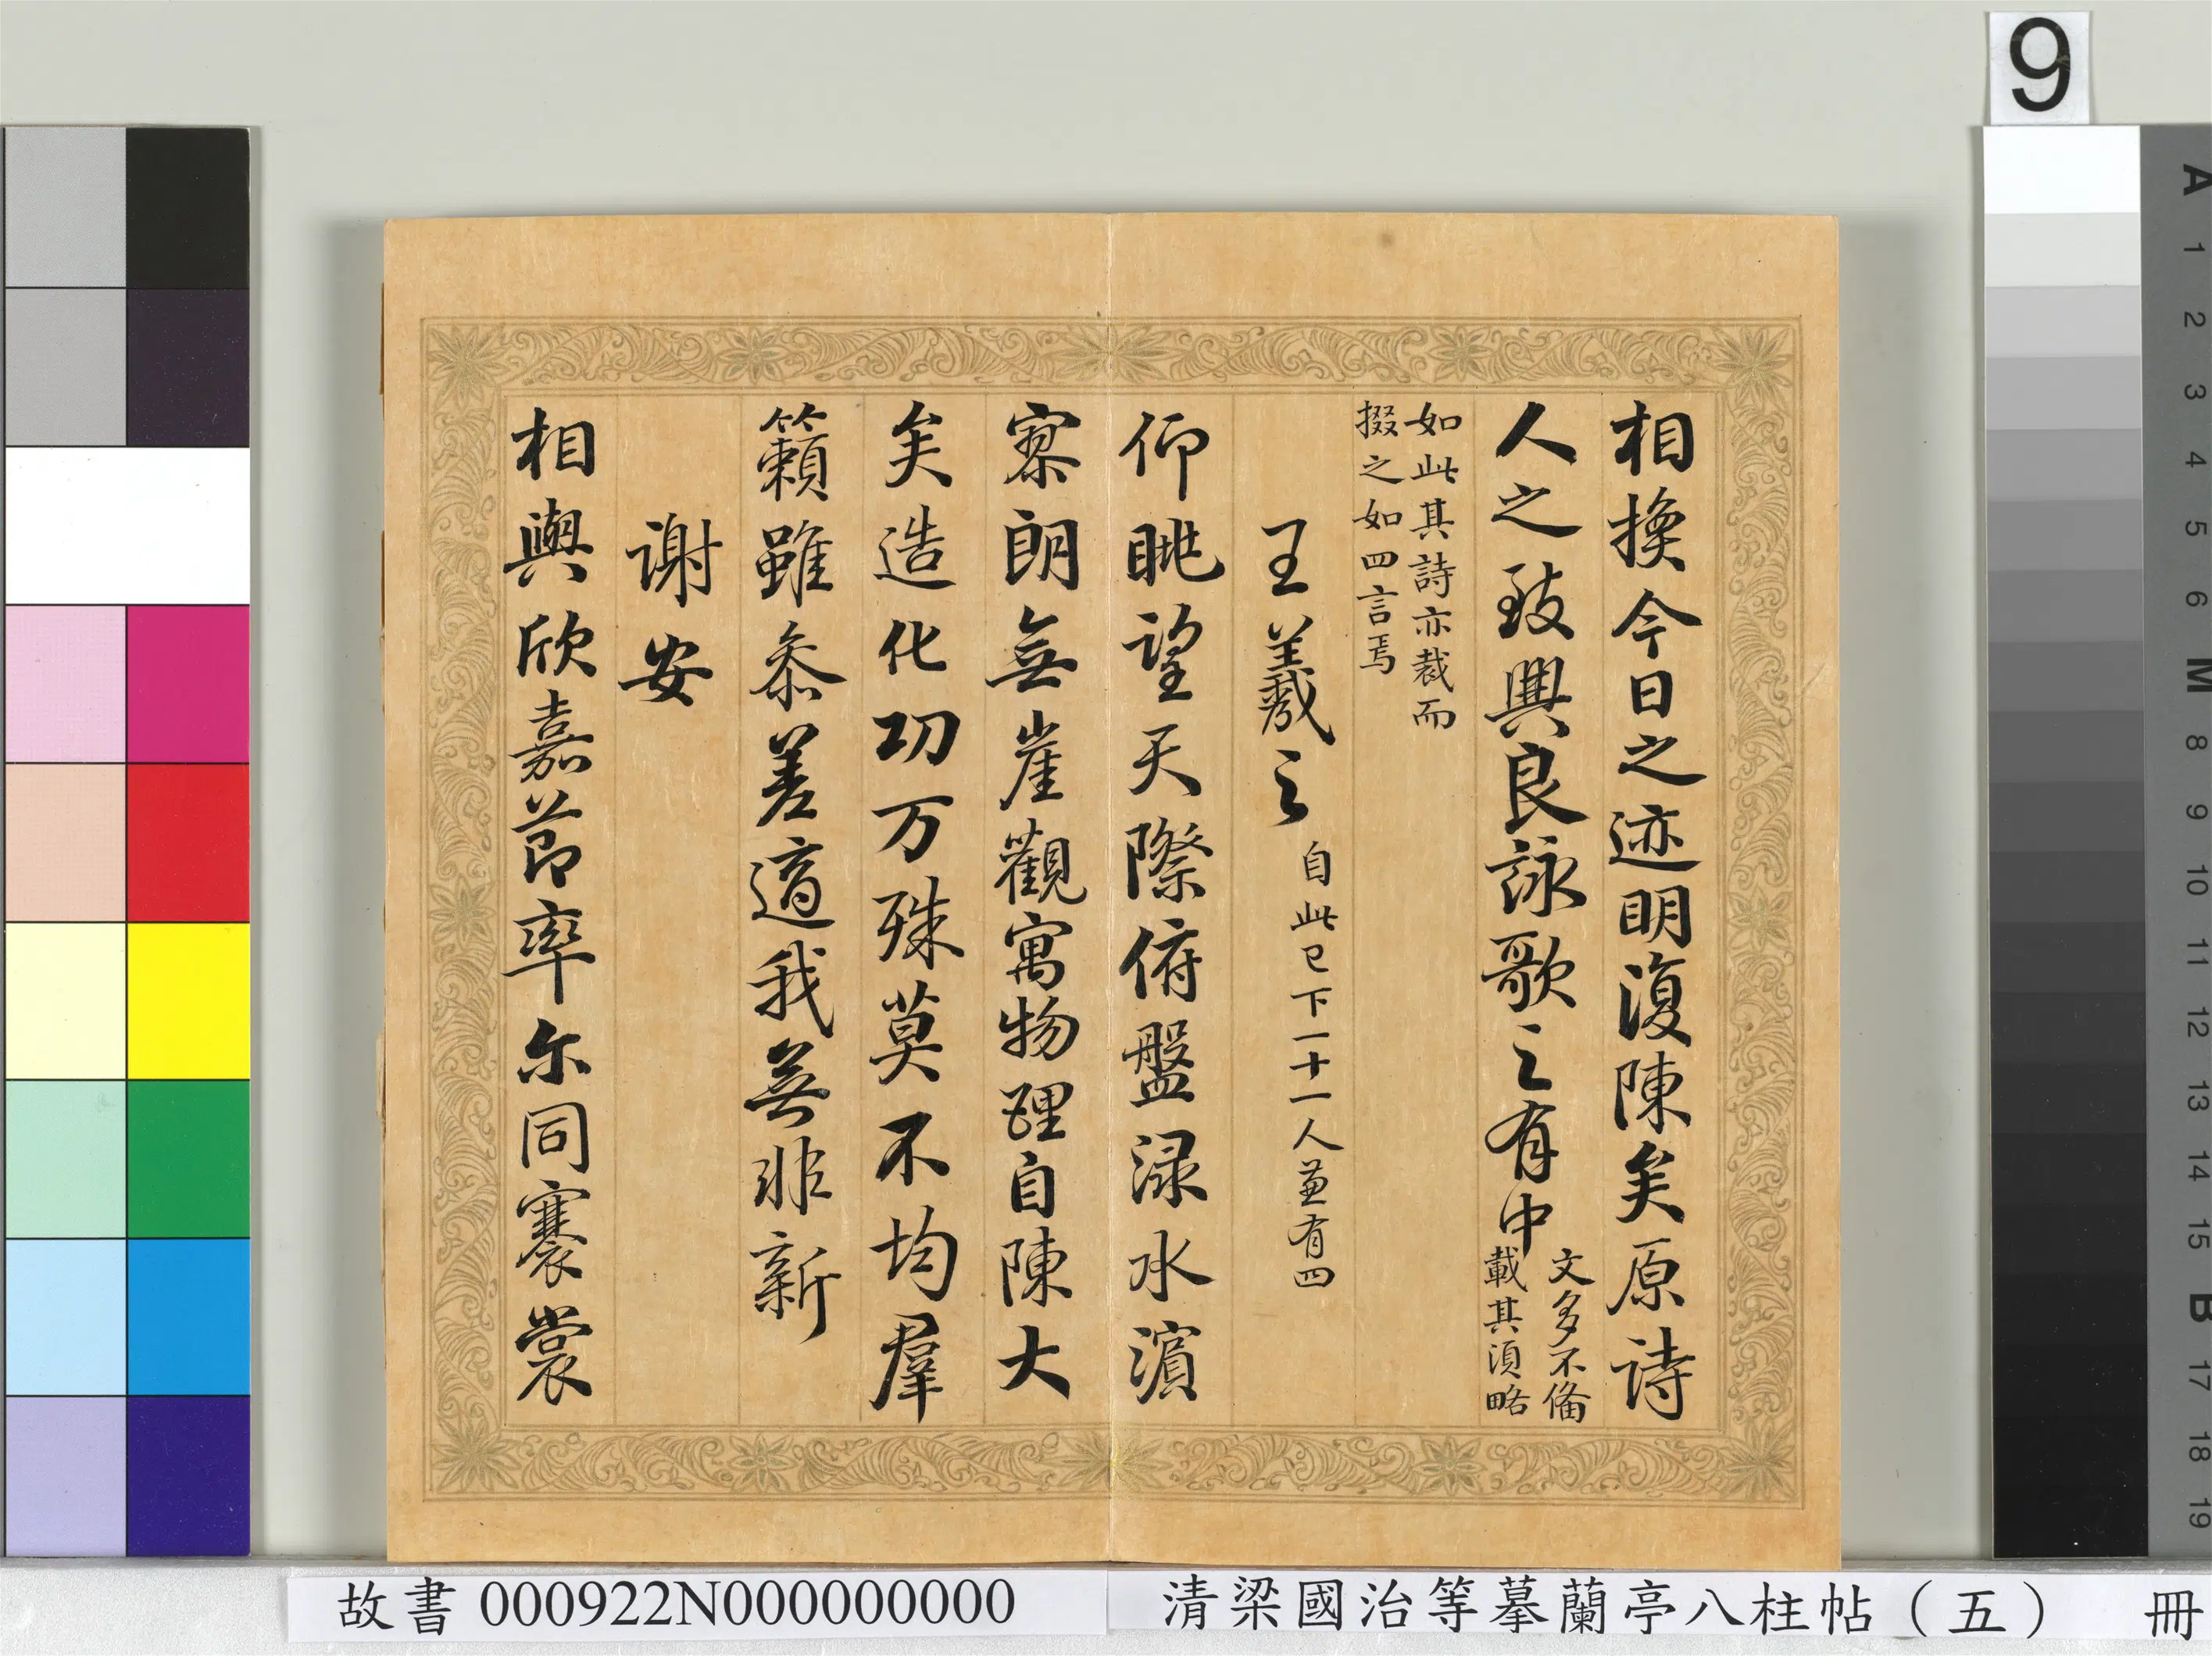 9
相換今日之迹明復陳矣原詩
人之致興良詠歌之有由文多不備
載其須略
如此其詩亦裁而
掇之如四言焉
王羲之自此已下一十一人並有四
仰眺望天際俯盤淥水濱
寥朗無崖觀寓物理自陳大
矣造化功万殊莫不均羣
籟雖叅差適我無非新
謝安
相與欣嘉節率尔同褰裳
故書000922N000000000
清梁國治等摹蘭亭八柱帖（五） 冊
A
1
2
3
4
5
6
M
8
9
10
11
12
13
14
15
B
17
18
19